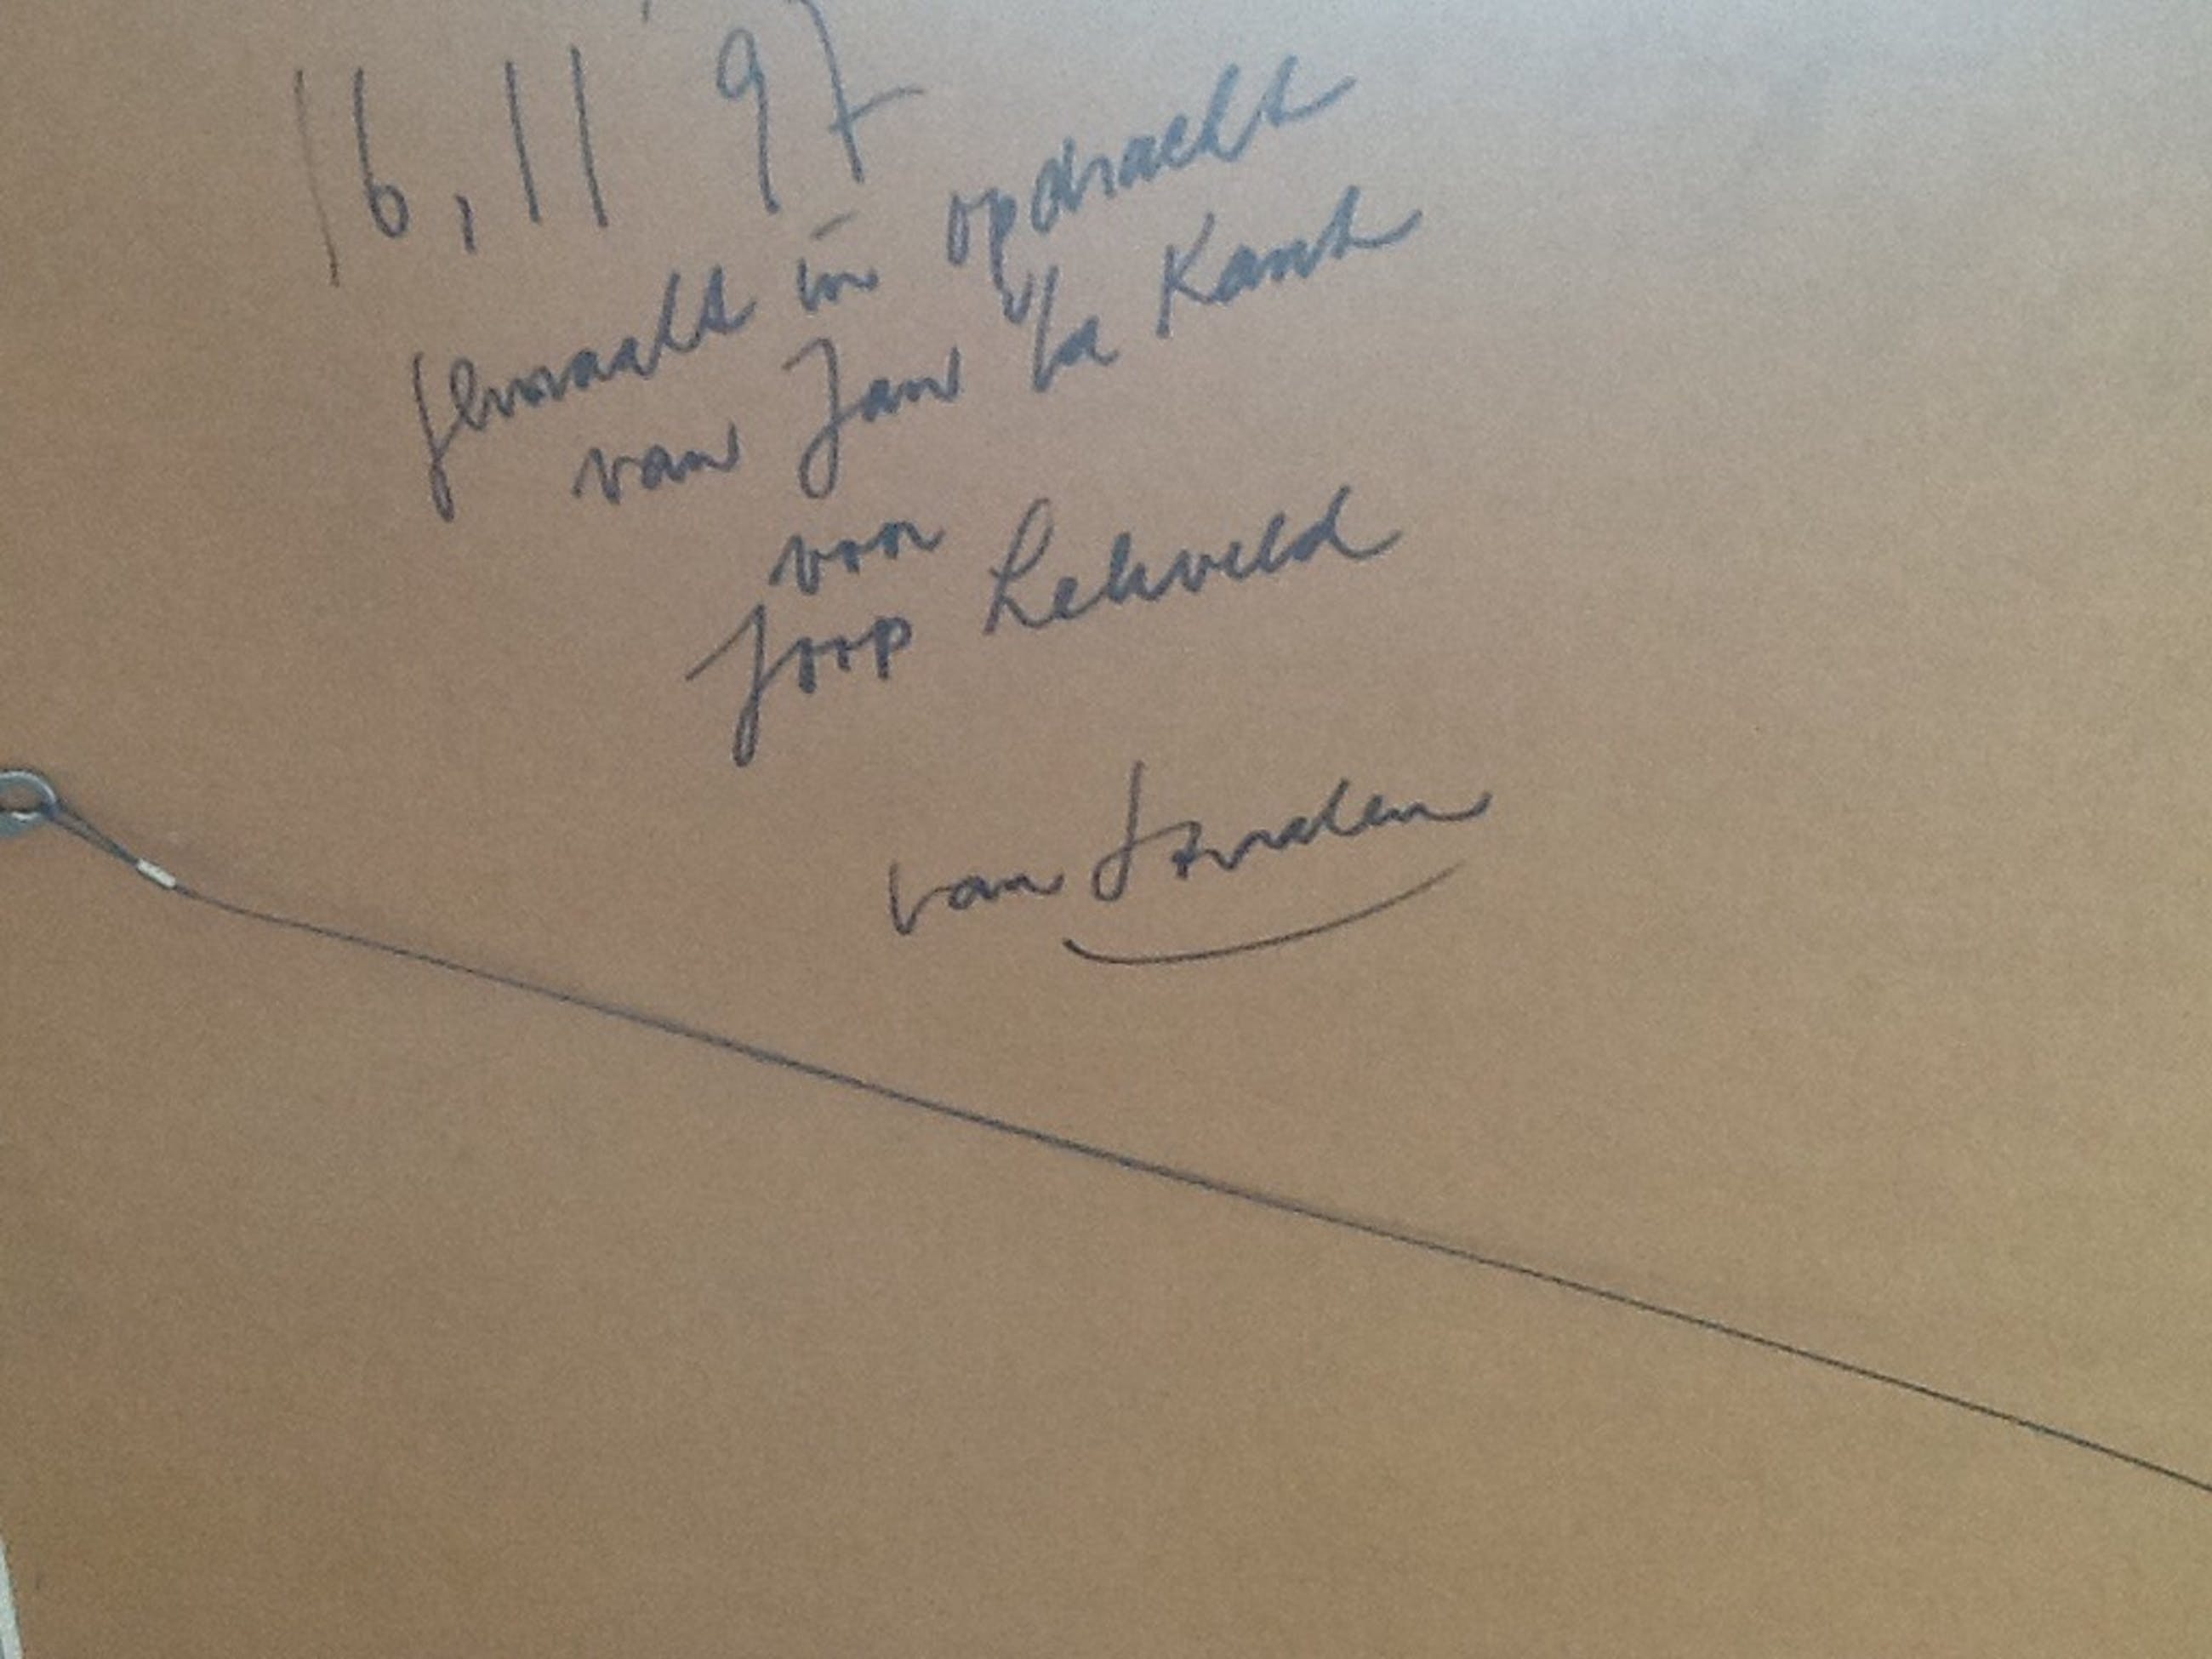 16, 11 '97
gemaakt in opdracht
van Jan v/a Kant
voor
Joop Lekveld
van